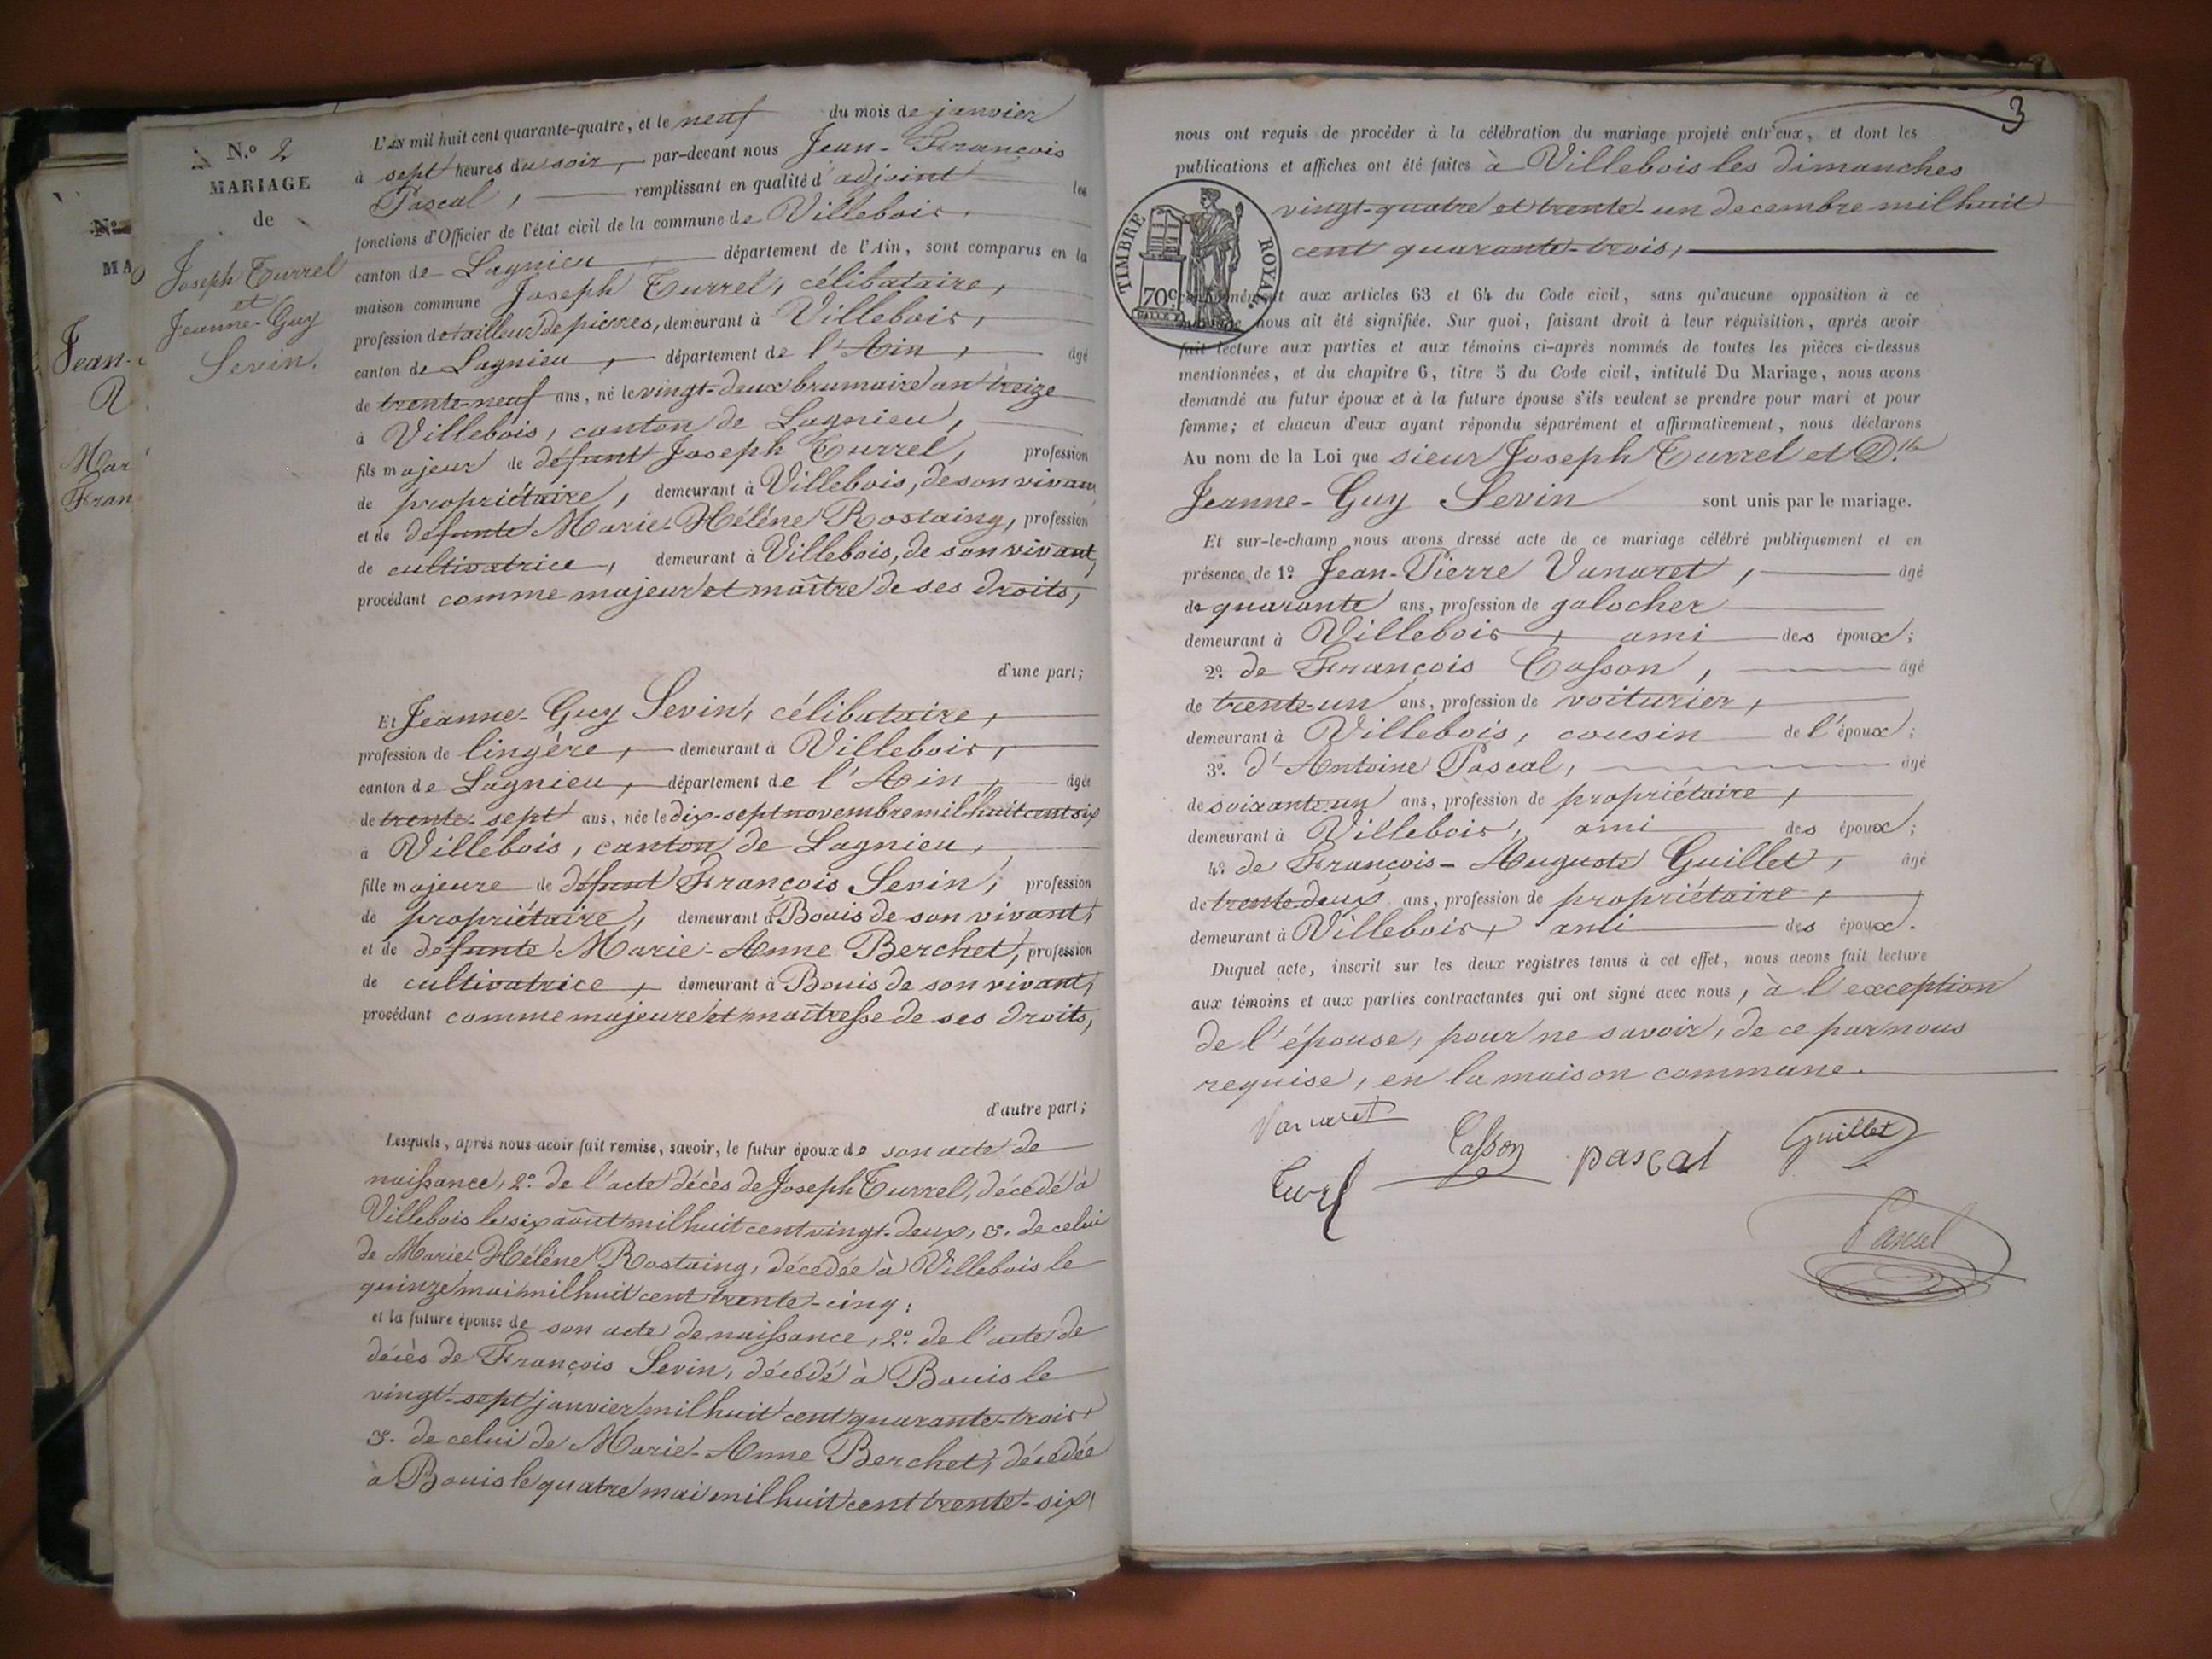 N.o 2
MARIAGE
de
Joseph Turrel
et
Jeanne-Guy
Sevin.
N.o
MA
Jean-
R
Mar
Fran
L'an mil huit cent quarante-quatre, et le neuf du mois de janvier
à sept heures du soir, par-devant nous Jean-François
Pascal, remplissant en qualité d'adjoint les
fonctions d'Officier de l'état civil de la commune de Villebois,
canton de Lagnieu, département de l'Ain, sont comparus en la
maison commune Joseph Turrel, célibataire,
profession de tailleur de pierres, demeurant à Villebois,
canton de Lagnieu, département de l'Ain, âgé
de trente-neuf ans, né le vingt-deux brumaire an treize
à Villebois, canton de Lagnieu,
fils majeur de défunt Joseph Turrel, profession
de propriétaire, demeurant à Villebois, de son vivant
et de défunte Marie-Hélène Rostaing, profession
de cultivatrice, demeurant à Villebois, de son vivant,
procédant comme majeur et maître de ses droits,
d'une part;
Et Jeanne-Guy Sevin, célibataire,
profession de lingère, demeurant à Villebois,
canton de Lagnieu, département de l'Ain, âgée
de trente-sept ans, née le dix-sept novembre mil huit cent six
à Villebois, canton de Lagnieu,
fille majeure de défunt François Sevin, profession
de propriétaire, demeurant à Bouis de son vivant,
et de défunte Marie-Anne Berchet, profession
de cultivatrice, demeurant à Bouis de son vivant,
procédant comme majeure et maîtresse de ses droits,
d'autre part;
Lesquels, après nous avoir fait remise, savoir, le futur époux de son acte de
naissance, 2.o de l'acte décès de Joseph Turrel, décédé à
Villebois le six août mil huit cent vingt-deux, 3. de celui
de Marie-Hélène Rostaing, décédée à Villebois le
quinze mai mil huit cent trente-cinq;
et la future épouse de son acte de naissance, 2.o de l'acte de
décès de François Sevin, décédé à Bouis le
vingt-sept janvier mil huit cent quarante-trois,
3. de celui de Marie-Anne Berchet, décédée
à Bouis le quatre mai mil huit cent trente-six,
3
nous ont requis de procéder à la célébration du mariage projeté entr'eux, et dont les
publications et affiches ont été faites à Villebois les dimanches
vingt-quatre et trente-un decembre mil huit
cent quarante-trois,
TIMBRE ROYAL.
70c
conformément aux articles 63 et 64 du Code civil, sans qu'aucune opposition à ce
mariage nous ait été signifiée. Sur quoi, faisant droit à leur réquisition, après avoir
fait lecture aux parties et aux témoins ci-après nommés de toutes les pièces ci-dessus
mentionnées, et du chapitre 6, titre 5 du Code civil, intitulé Du Mariage, nous avons
demandé au futur époux et à la future épouse s'ils veulent se prendre pour mari et pour
femme; et chacun d'eux ayant répondu séparément et affirmativement, nous déclarons
Au nom de la Loi que sieur Joseph Turrel et D.lle
Jeanne-Guy Sevin sont unis par le mariage.
Et sur-le-champ nous avons dressé acte de ce mariage célébré publiquement et en
présence de 1.o Jean-Pierre Vanaret, âgé
de quarante ans, profession de galocher
demeurant à Villebois, ami des époux;
2.o de François Casson, âgé
de trente-un ans, profession de voiturier,
demeurant à Villebois, cousin de l'époux;
3.o d'Antoine Pascal, âgé
de soixante-un ans, profession de propriétaire,
demeurant à Villebois, ami des époux;
4.o de François-Auguste Guillet, âgé
de trente-deux ans, profession de propriétaire,
demeurant à Villebois, ami des époux.
Duquel acte, inscrit sur les deux registres tenus à cet effet, nous avons fait lecture
aux témoins et aux parties contractantes qui ont signé avec nous, à l'exception
de l'épouse, pour ne savoir, de ce par nous
requise, en la maison commune.
Vanaret
Casson pascal Guillet
Turel
Pascal